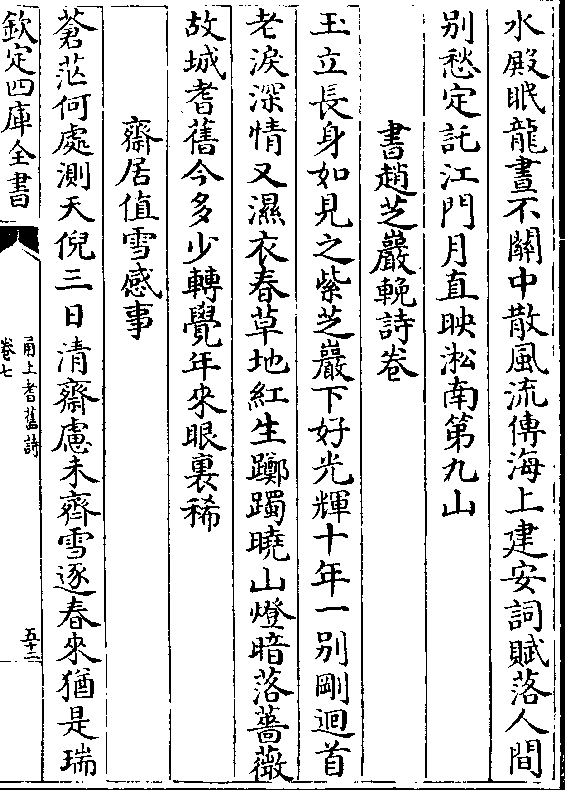 水殿眠龍晝不關中散風流傳海上建安詞賦落人間
別愁定託江門月直映淞南第九山
書趙芝巖輓詩卷
玉立長身如見之紫芝巖下好光輝十年一别剛迴首
老淚深情又濕衣春草地紅生躑躅曉山燈暗落薔薇
故城耆舊今多少轉覺年來眼裏稀
齋居值雪感事
蒼茫何處測天倪三日清齋慮未齊雪逐春來猶是瑞
欽定四庫全書
甬上耆舊詩
卷七
五十二